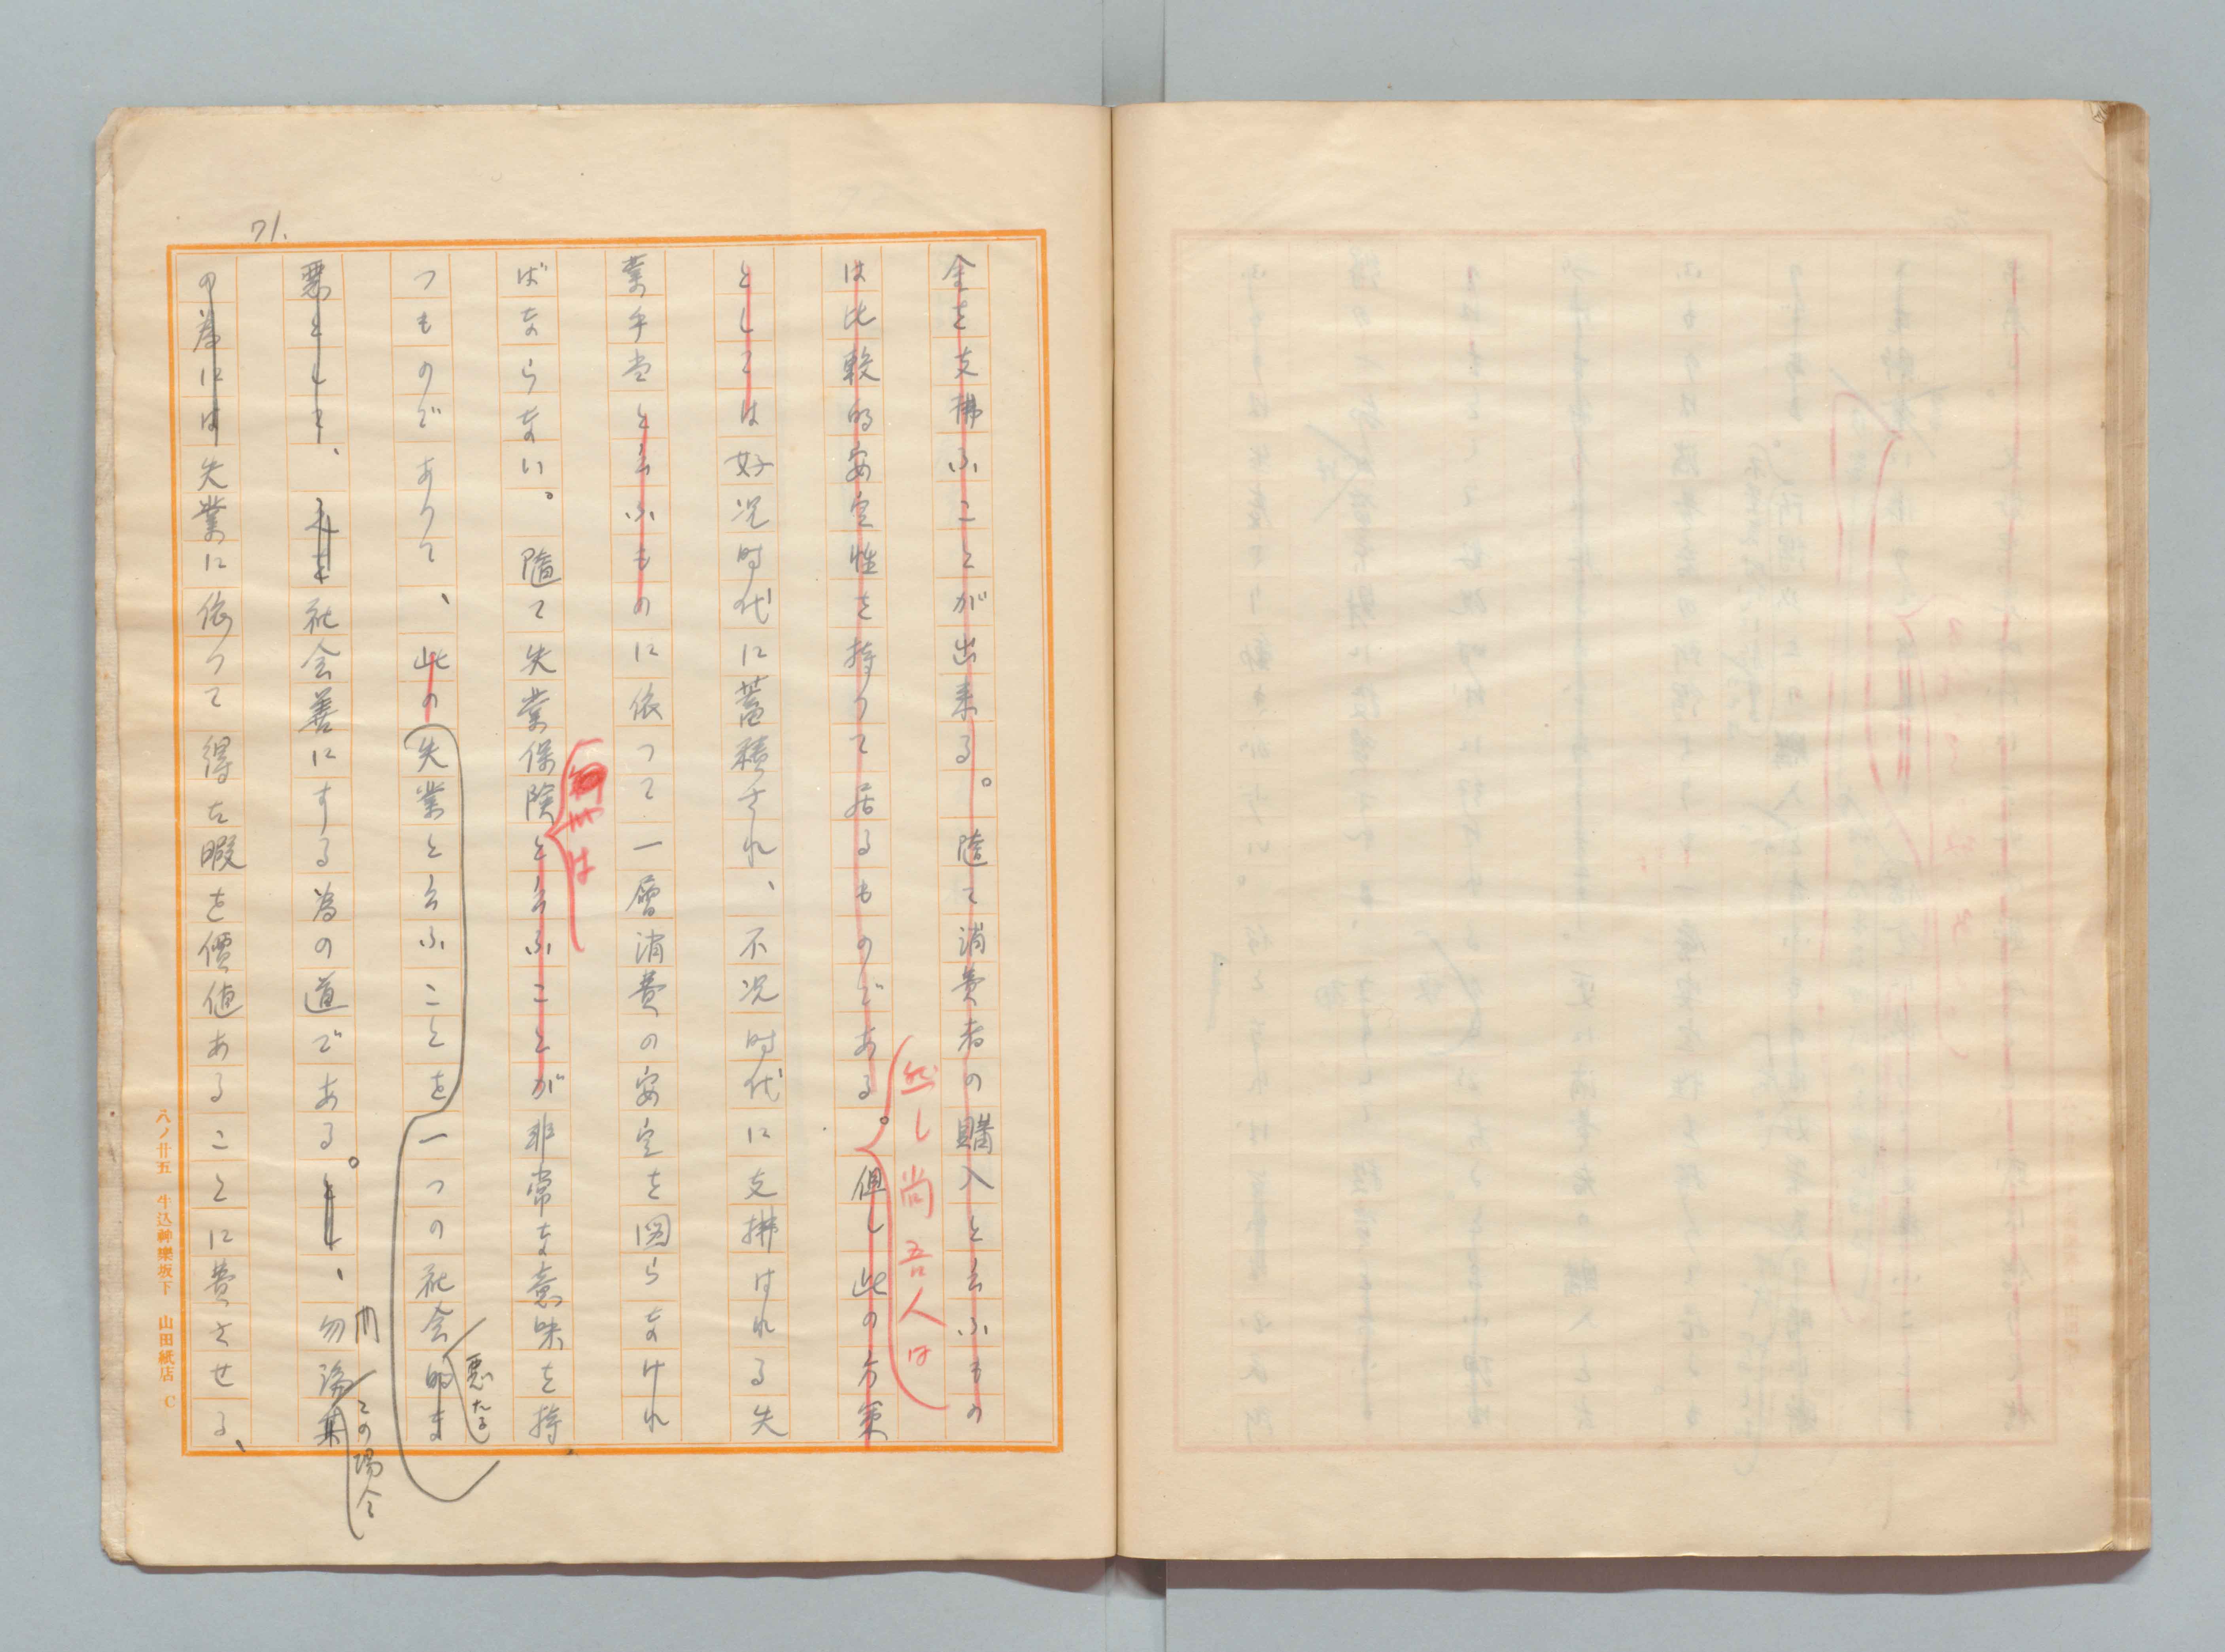 71.
金を支拂ふことが出来る。随て消費者の購入と云ふもの
は比較的安定性を持つて居るものである。但し此の方策
然し尚吾人は
としては好況時代に蓄積され、不況時代に支拂はれる失
業手当と云ふものに依つて一層消費の安定を図らなけれ
ばならない。随て失業保険と云ふことが非常な意味を持
は
つものであつて、此の失業と云ふことを一つの社会的ま
悪たる
悪として、之を社会善にする為の道である。とし、勿論其
この場合
の為には失業に依つて得た暇を價値あることに費させる、
八ノ廿五 牛込神樂坂下 山田紙店 C